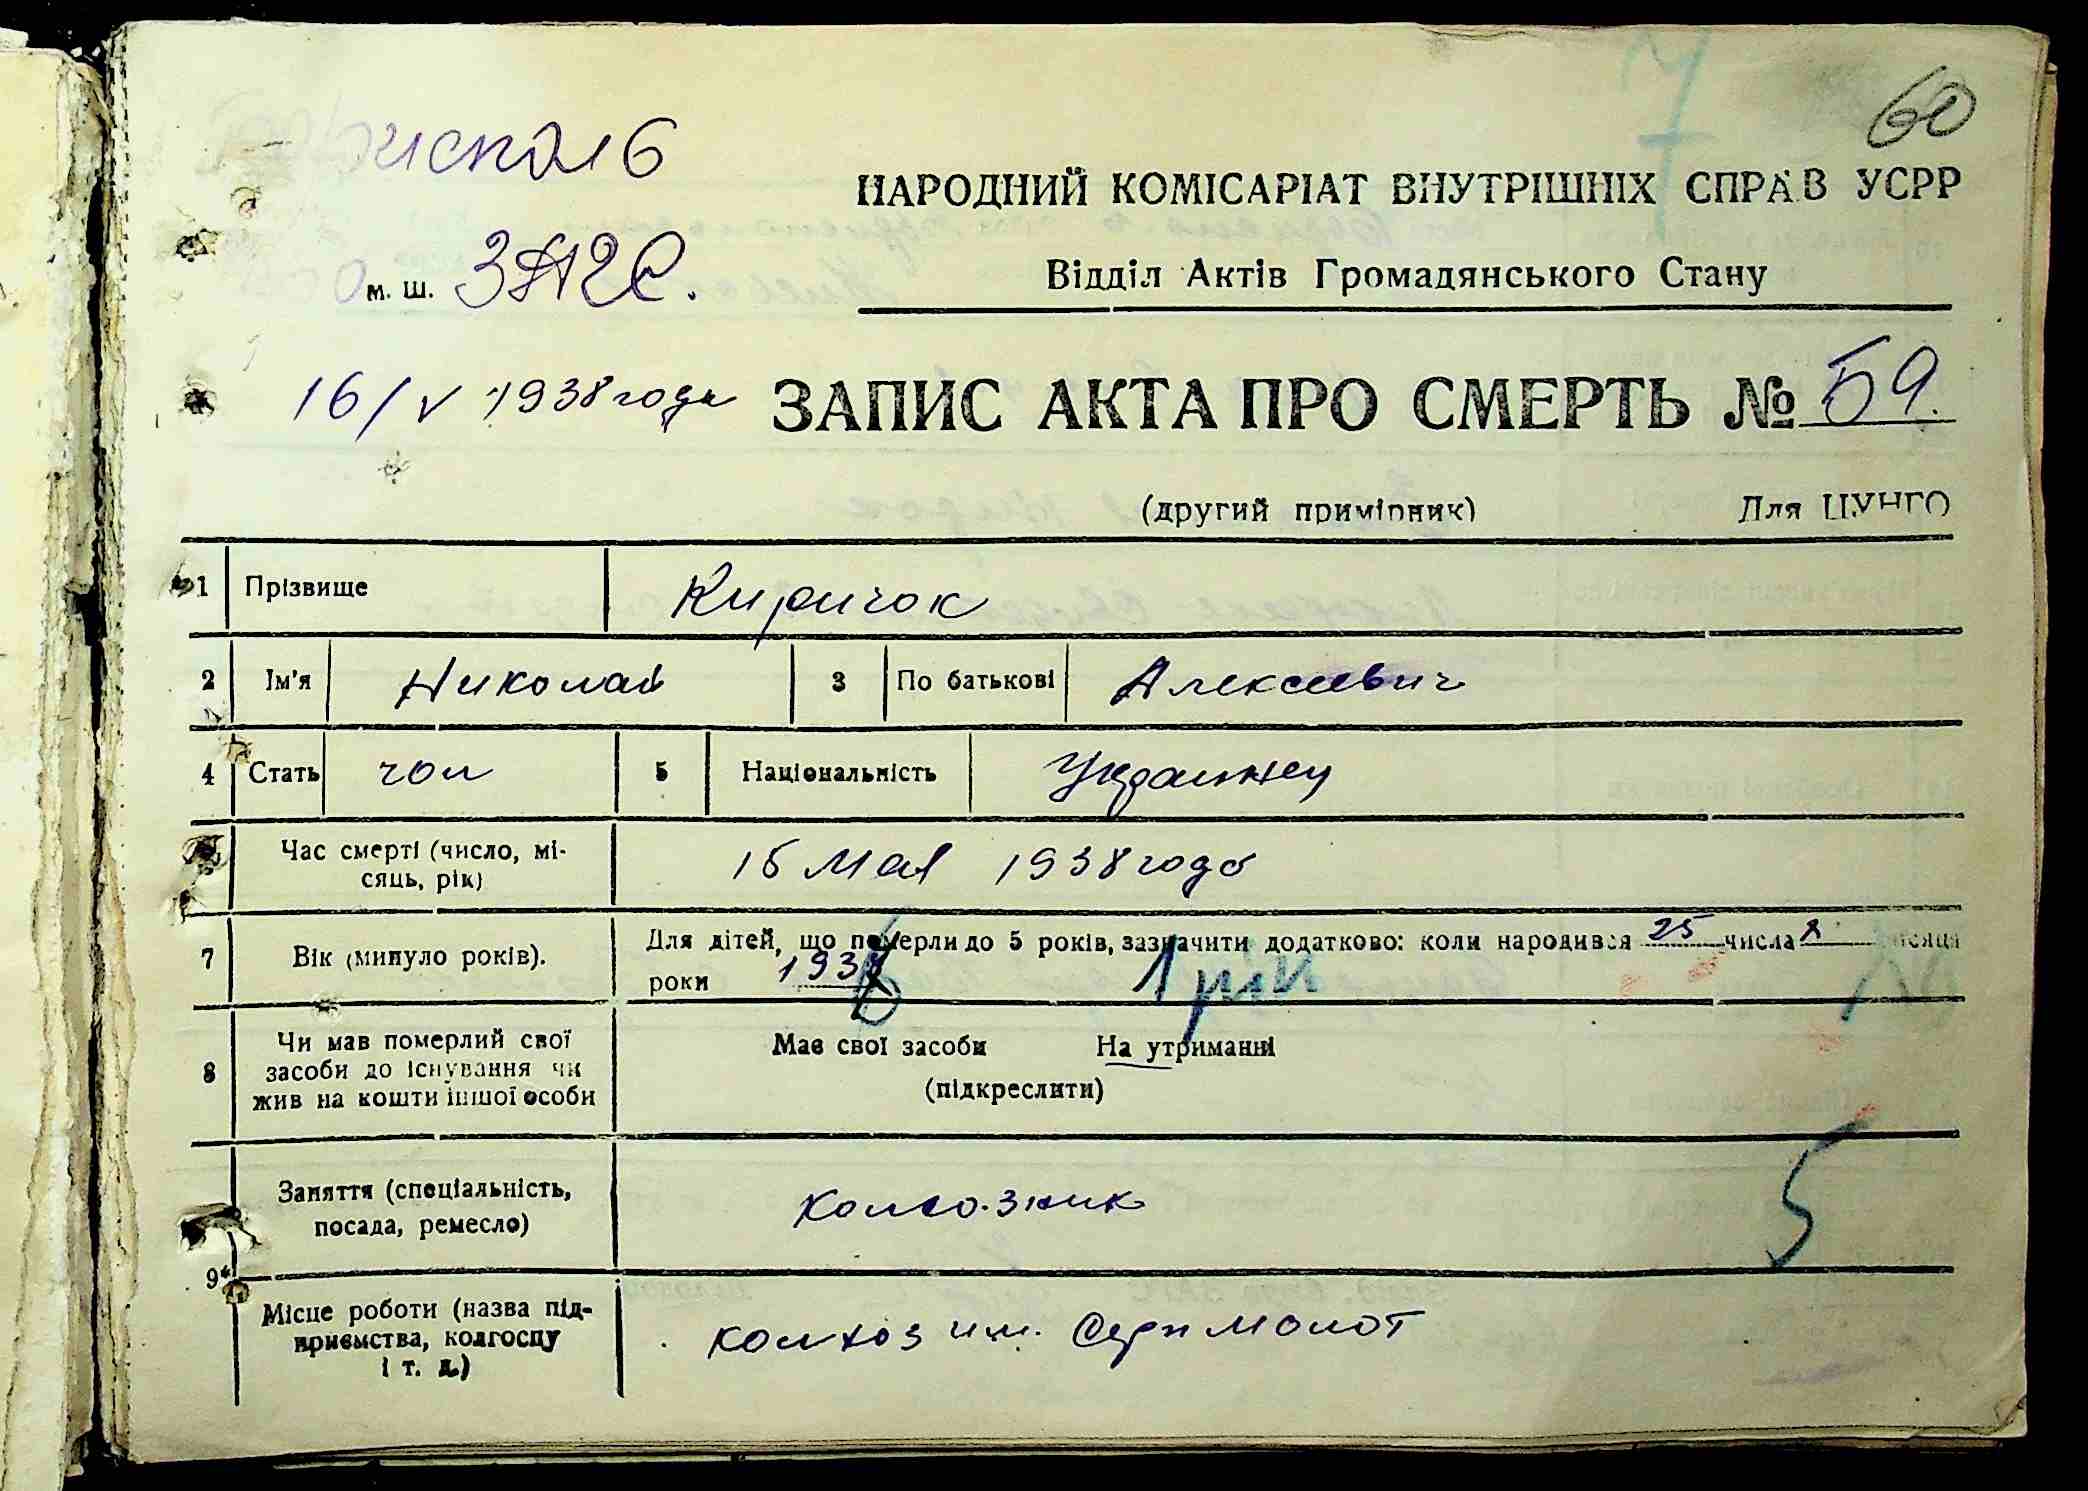 60
7
исполь
НАРОДНИЙ КОМІСАРІАТ ВНУТРІШНІХ СПРАВ УСРР
м. ш. ЗАГС.
Відділ Актів Громадянського Стану
16/V 1938 года ЗАПИС АКТА ПРО СМЕРТЬ № 59.
(другий примірник) Для ЦУНГО
1 Прізвище Киричок
2 Ім'я Николай 3 По батькові Алексеевич
4 Стать чол 5 Національність Украинец
Час смерті (число, мі-
сяць, рік) 15 Мая 1938 года
7 Вік (минуло років). Для дітей, що померли до 5 років, зазначити додатково: коли народився 25 числа X місяця
роки 1936 1 рік
8 Чи мав померлий свої
засоби до існування чи
жив на кошти іншої особи
Має свої засоби На утриманні
(підкреслити)
Заняття (спеціальність,
посада, ремесло) колхозник 5
9*
Місце роботи (назва під-
приємства, колгоспу
і т. д.) колхоз им. Серп Молот